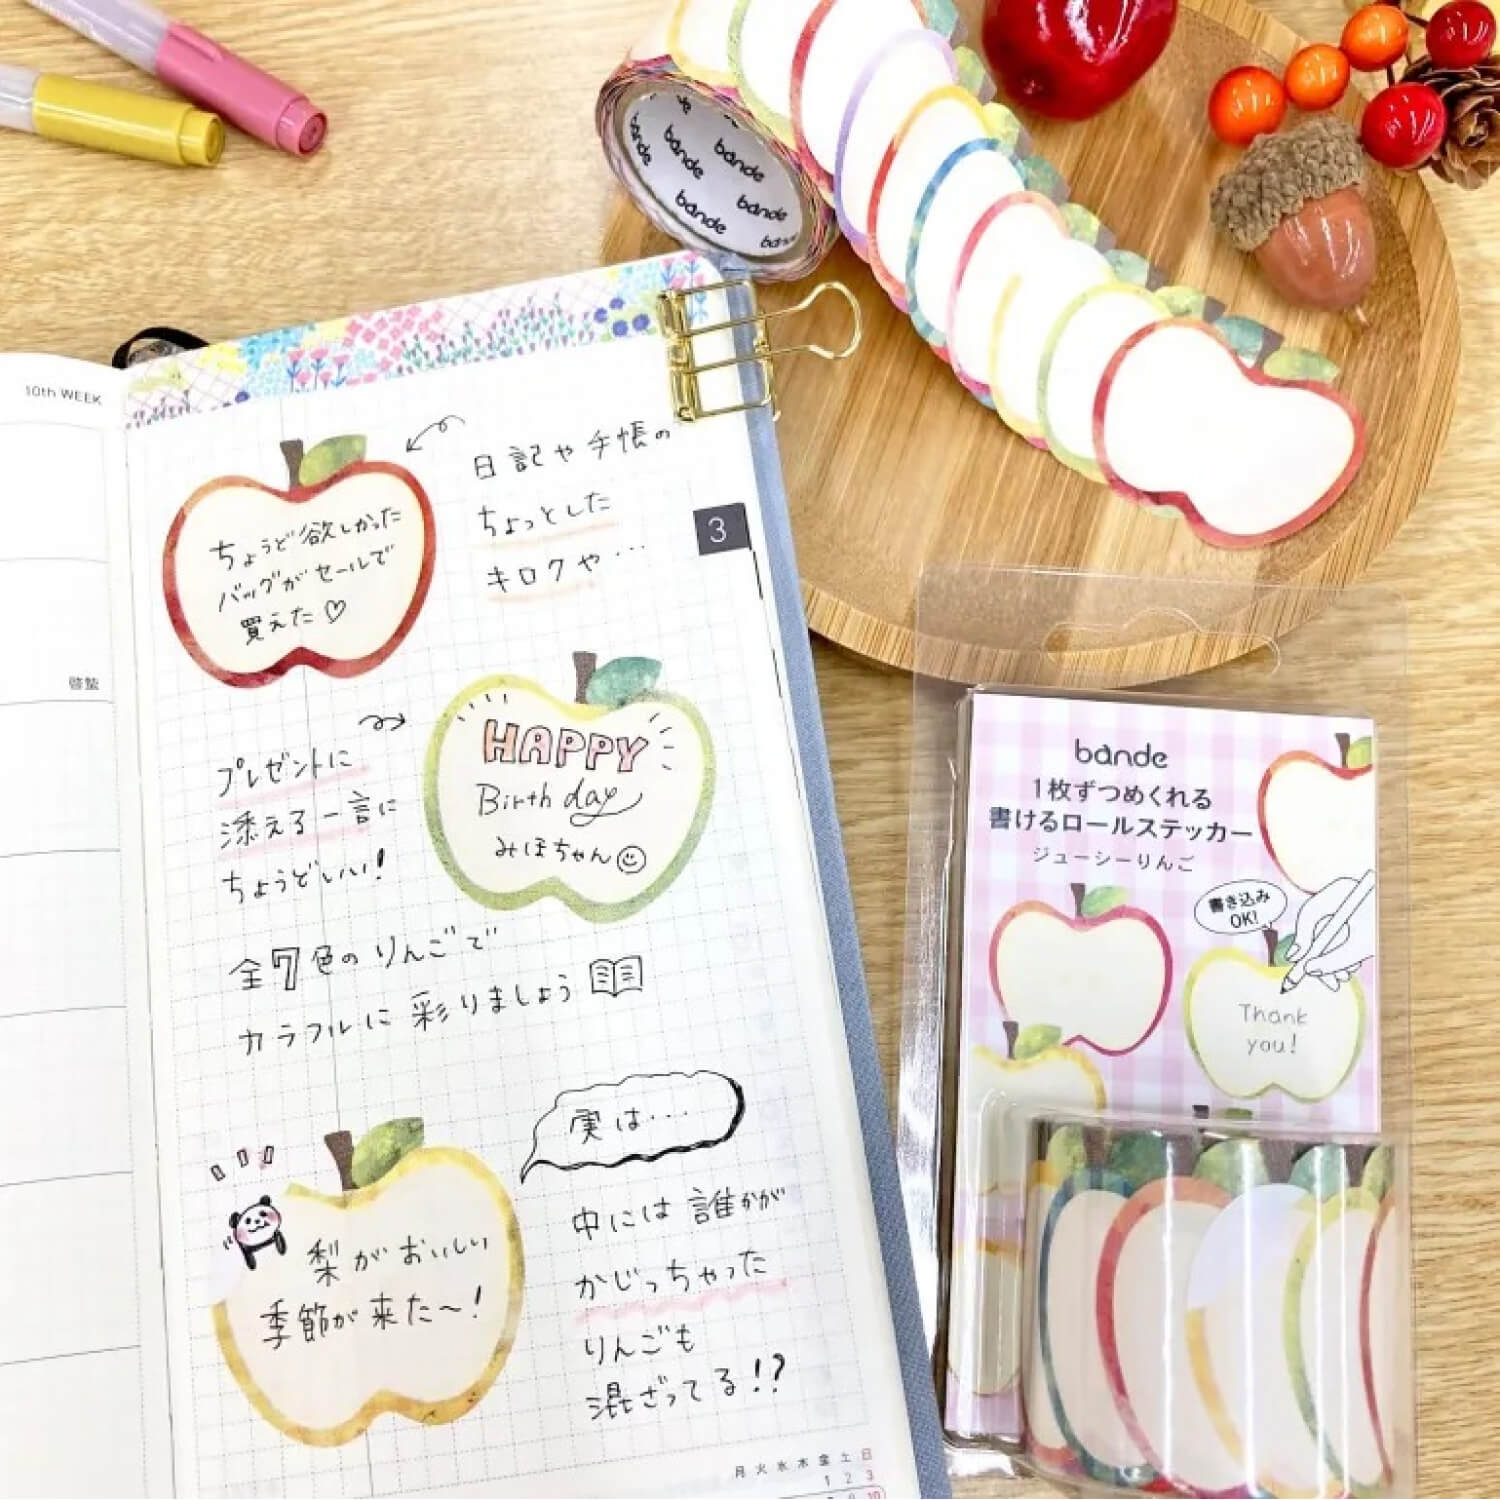 10th WEEK
啓蟄
日記や手帳の
ちょっとした
キロクや…
ちょうど欲しかった
バッグがセールで
買えた♡
3
HAPPY
Birthday
みほちゃん
プレゼントに
添える一言に
ちょうどいい!
全7色のりんごで
カラフルに彩りましょう
実は…
梨がおいしい
季節が来た〜!
中には誰かが
かじっちゃった
りんごも
混ざってる!?
月 火 水 木 金 土 日
1 2 3
10
bande
bande
bande
bande
bande
bande
bande
1枚ずつめくれる
書けるロールステッカー
ジューシーりんご
書き込み
OK!
Thank
you!